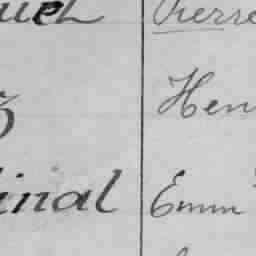 uel Pierre
z Hen
inal Emm